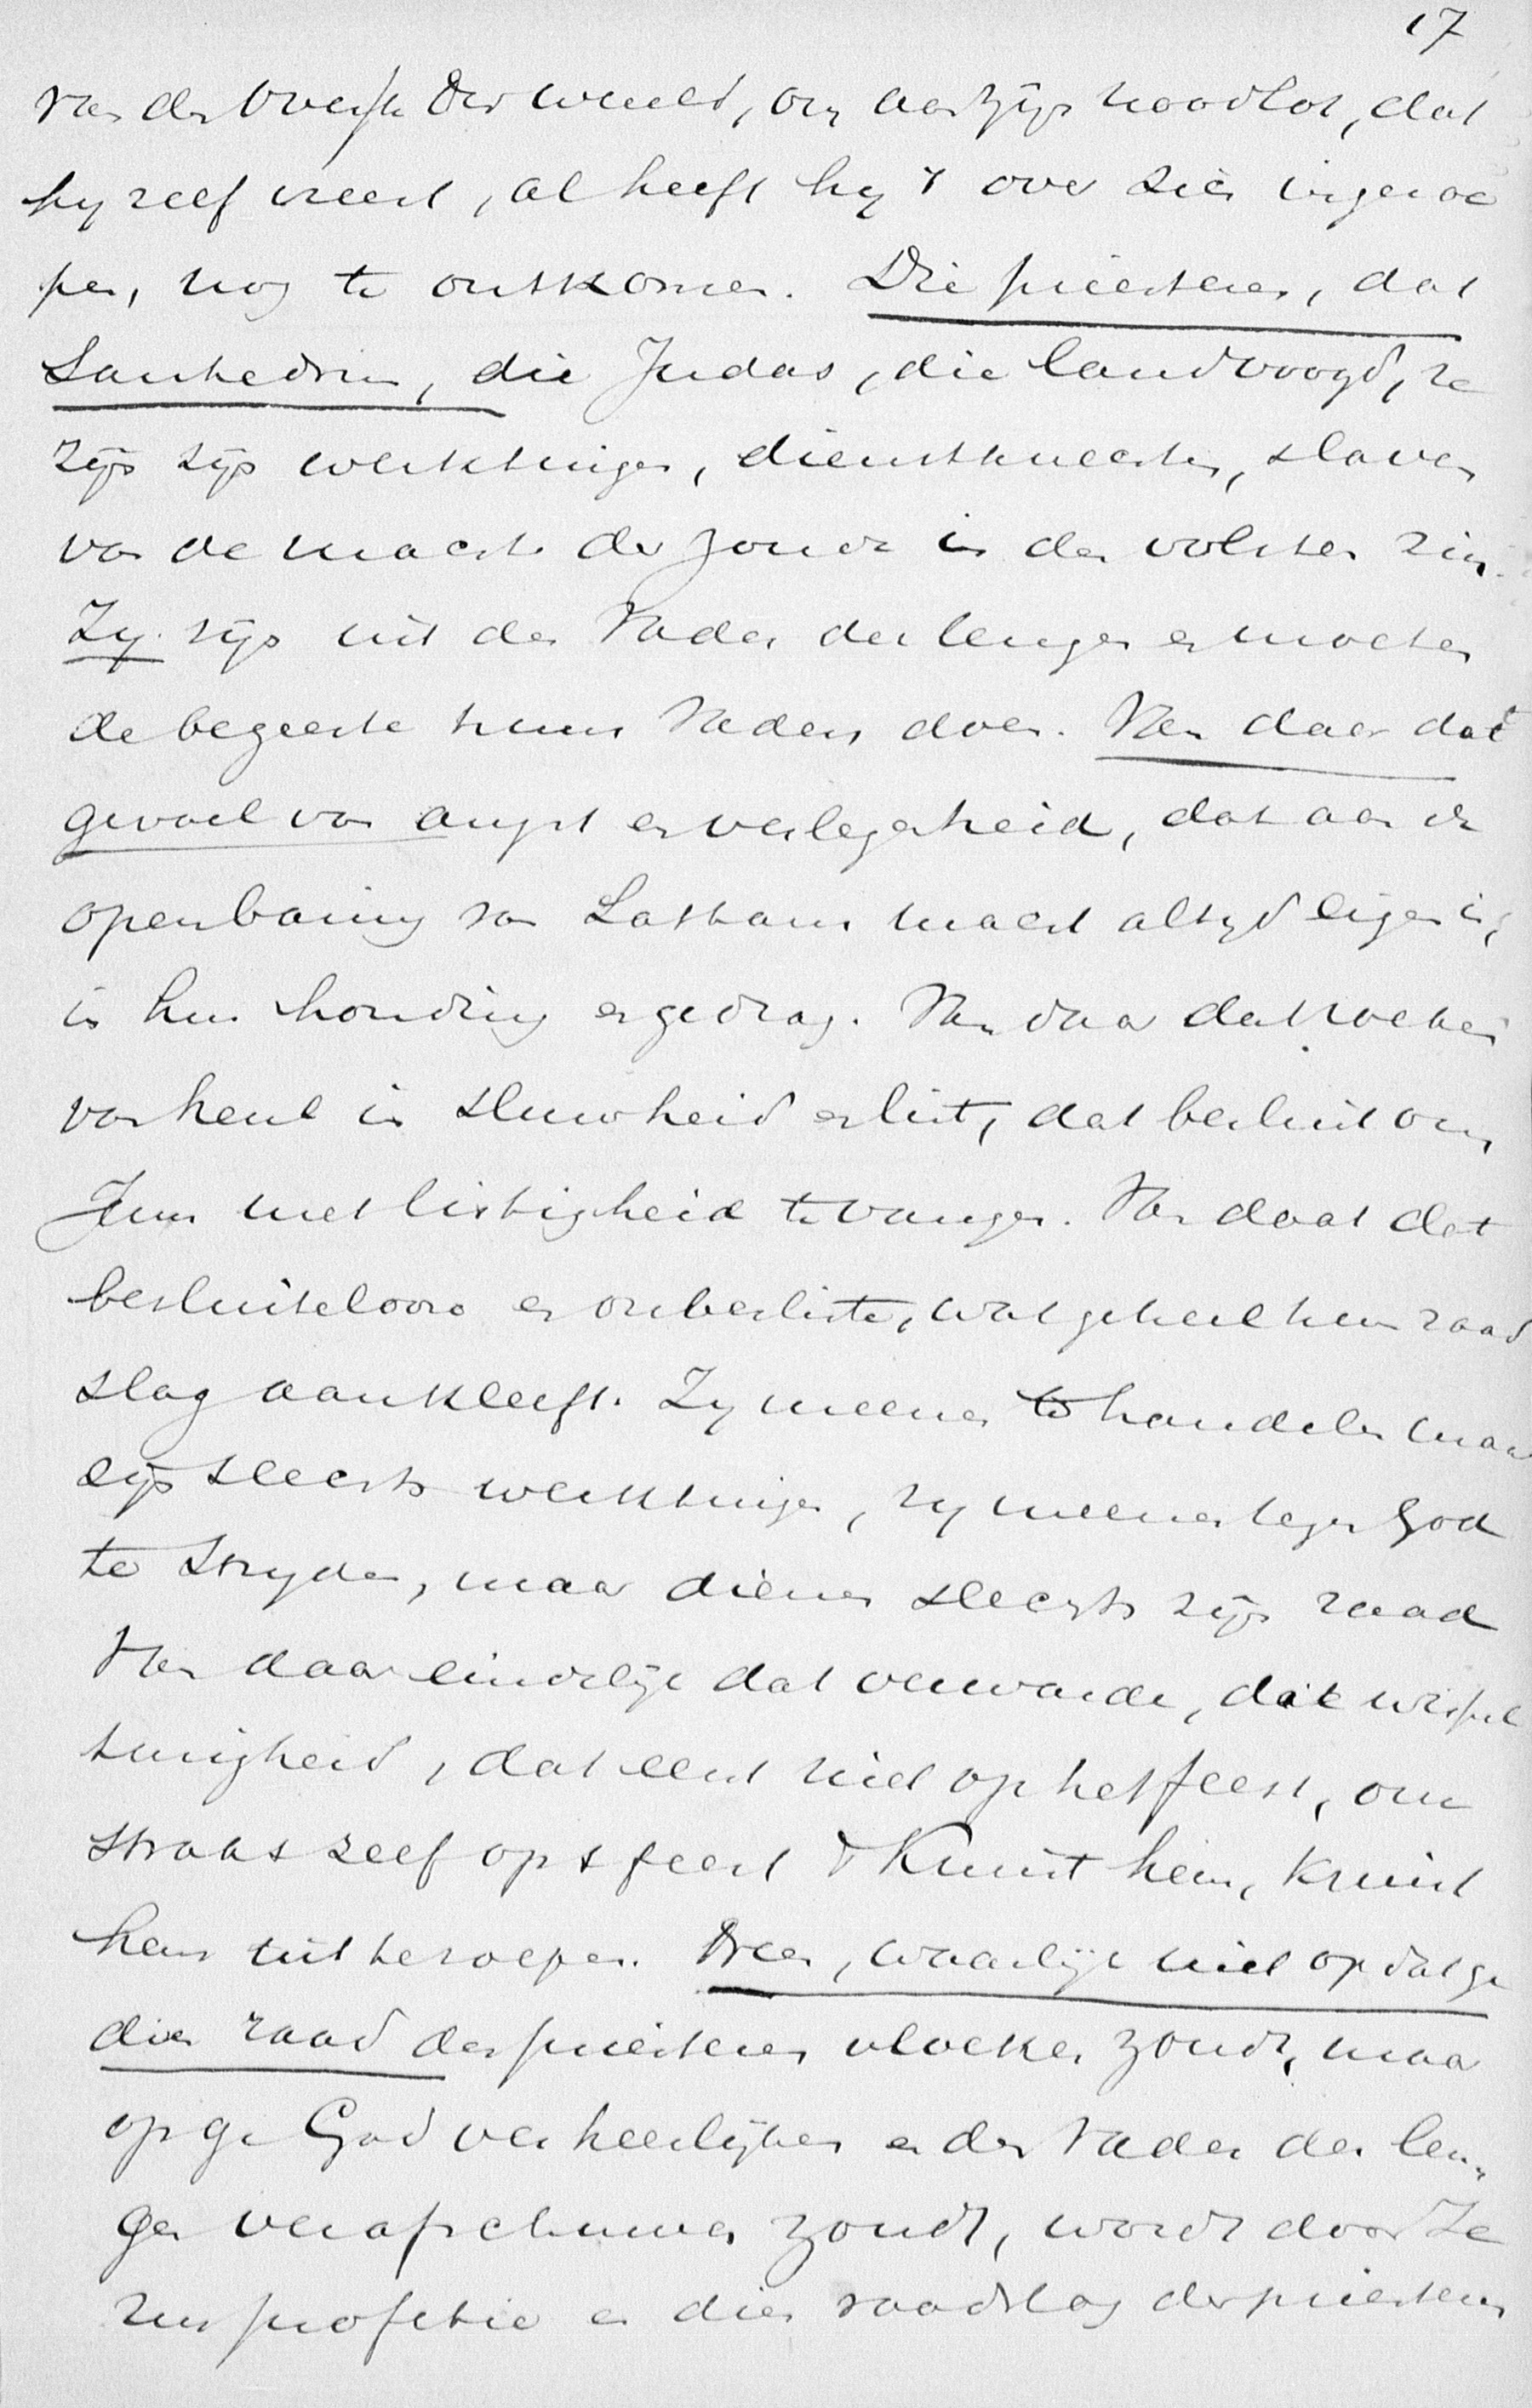 17
van den Overste der wereld, om aan zijn noodlot, dat
hy zelf vreest, al heeft hy 't over zich ingeroe
pen, nog te ontkomen. Die priesteren, dat
Sanhedrin, die Judas, die landvoogd, ze
zijn zijn werktuigen, dienstknechten, slaven
van de macht der zonde in den volsten zin.
Zy zijn uit den Vader der leugen en moeten
de begeerte huns Vaders doen. Van daar dat
gevoel van angst en verlegenheid, dat aan de
openbaring van Satans macht altyd eigen is,
in hun houding en gedrag. Van daar dat zoeken
van heul in sluwheid en list, dat besluit om
Jezus met listigheid te vangen. Van daar dat
besluiteloose en onbesliste, wat geheel hun raad
slag aankleeft. Zy meenen te handelen maar
zijn slechts werktuigen, zy meenen tegen God
te stryden, maar dienen slechts zijn raad
Van daar eindelijk dat verwarde, dat wispel
turigheid, dat eerst niet op het feest, om
straks zelf op 't feest 't Kruist hem, kruist
hem uit te roepen. Neen, waarlijk niet opdat ge
dien raad der priesteren vloeken zoudt, maar
op ge God verheerlijken en den Vader der leu
gen verafschuwen zoudt, wordt door Je
zus profetie en dien raadslag der priesteren